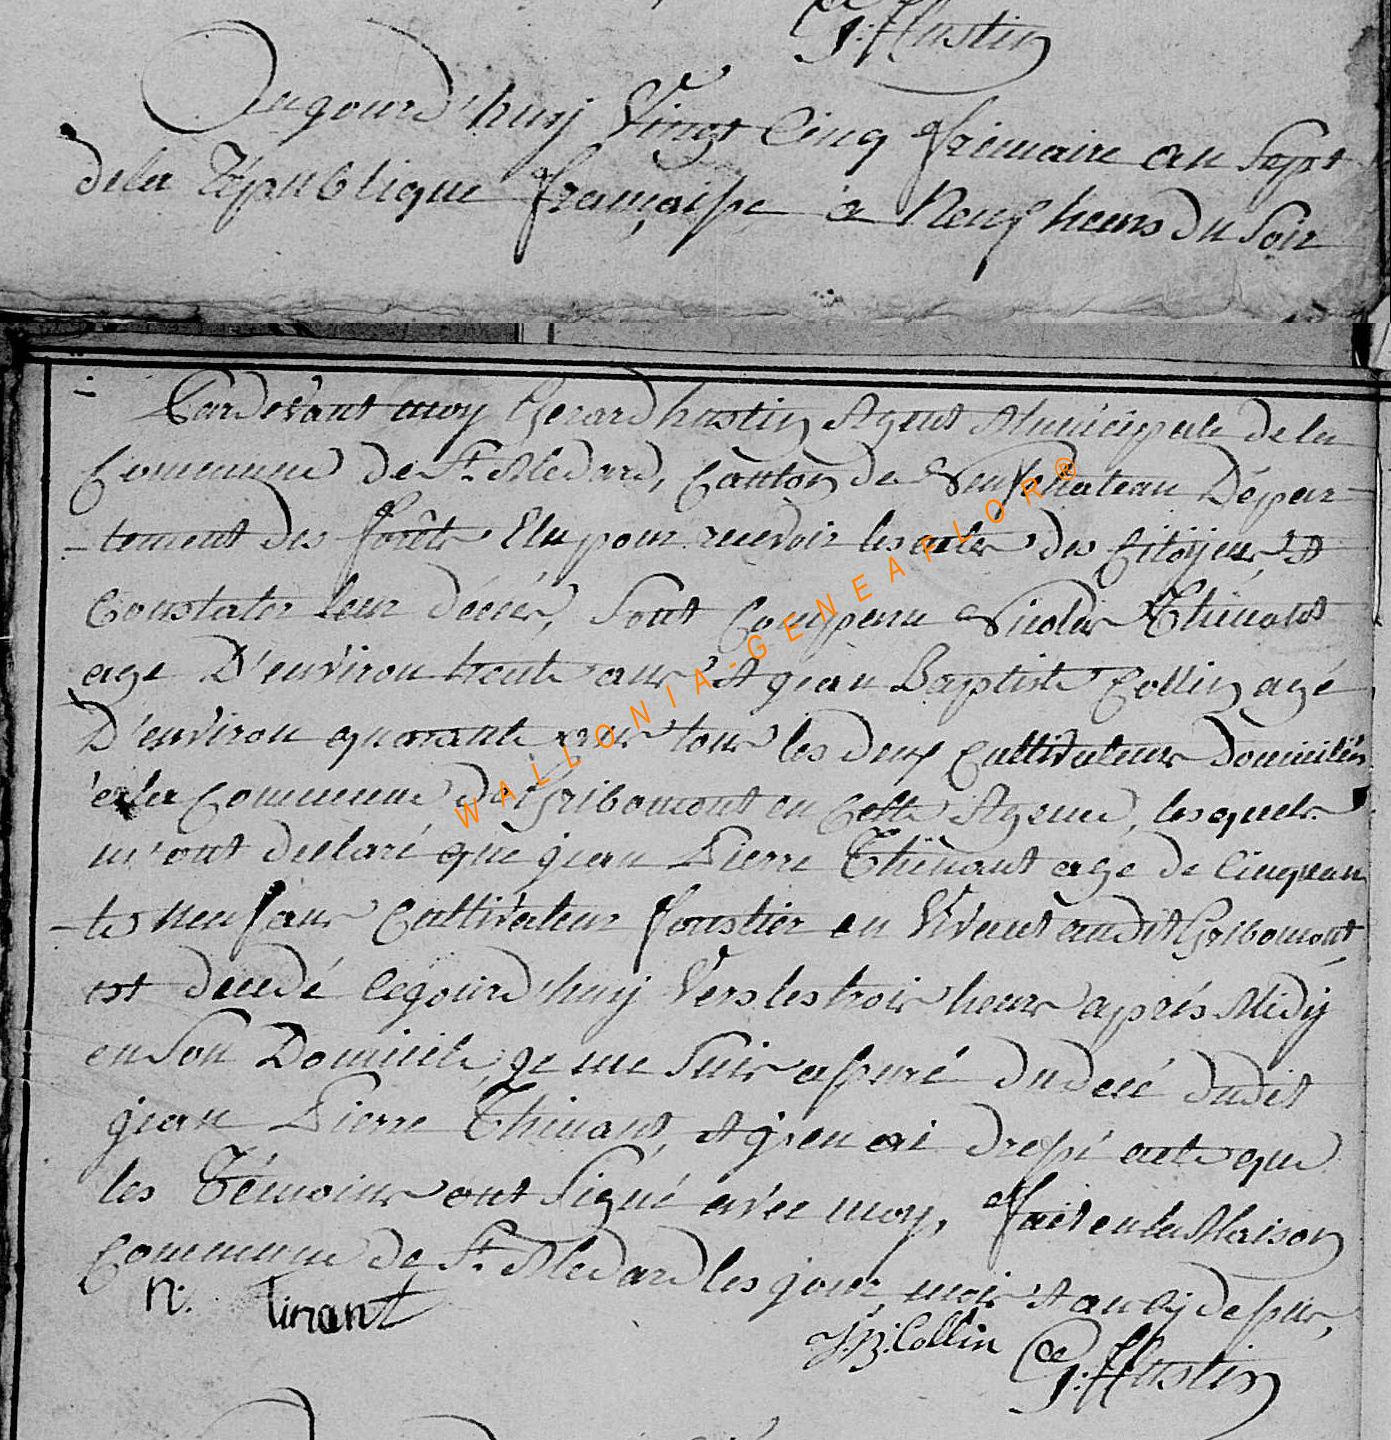 G: Hustin
Aujourd'huy Vingt Cinq frimaire an Sept
dela République françaisse à Neuf heurs du Soir
Pardevant moy Gerard hustin Agent Municipale de la
Commune de St. Medard, Canton de Neufchateau Dépar-
-tement des forêts Elu pour recevoir les actes des Citoÿens, et
Constater leur décés, sont Comparu Nicolas Thinant
age D'environ trente ans et jean Baptiste Collin agé
D'environ quarante ans tous les deux Cultivateurs domiciliés
à la Commune de Gribomont en Cette Agence, lesquels
m'ont declaré que jean Pierre Thinant age de Cinquan
-te neuf ans Cultivateur foustier en Vivant audit Gribomont,
est decedé cejourd'huij Vers les trois heurs aprés Midÿ
en Son Domicile, je me suis assuré du decé dudit
jean Pierre Thinant, et j'en ai dressé acte que
les Témoins ont Signé avec moy, fait en la Maison
Commune de St. Medard les jour, mois et an cy dessus,
n: tinant
J:B: Collin G: Hustin
WALLONIA-GENEAFLOR®